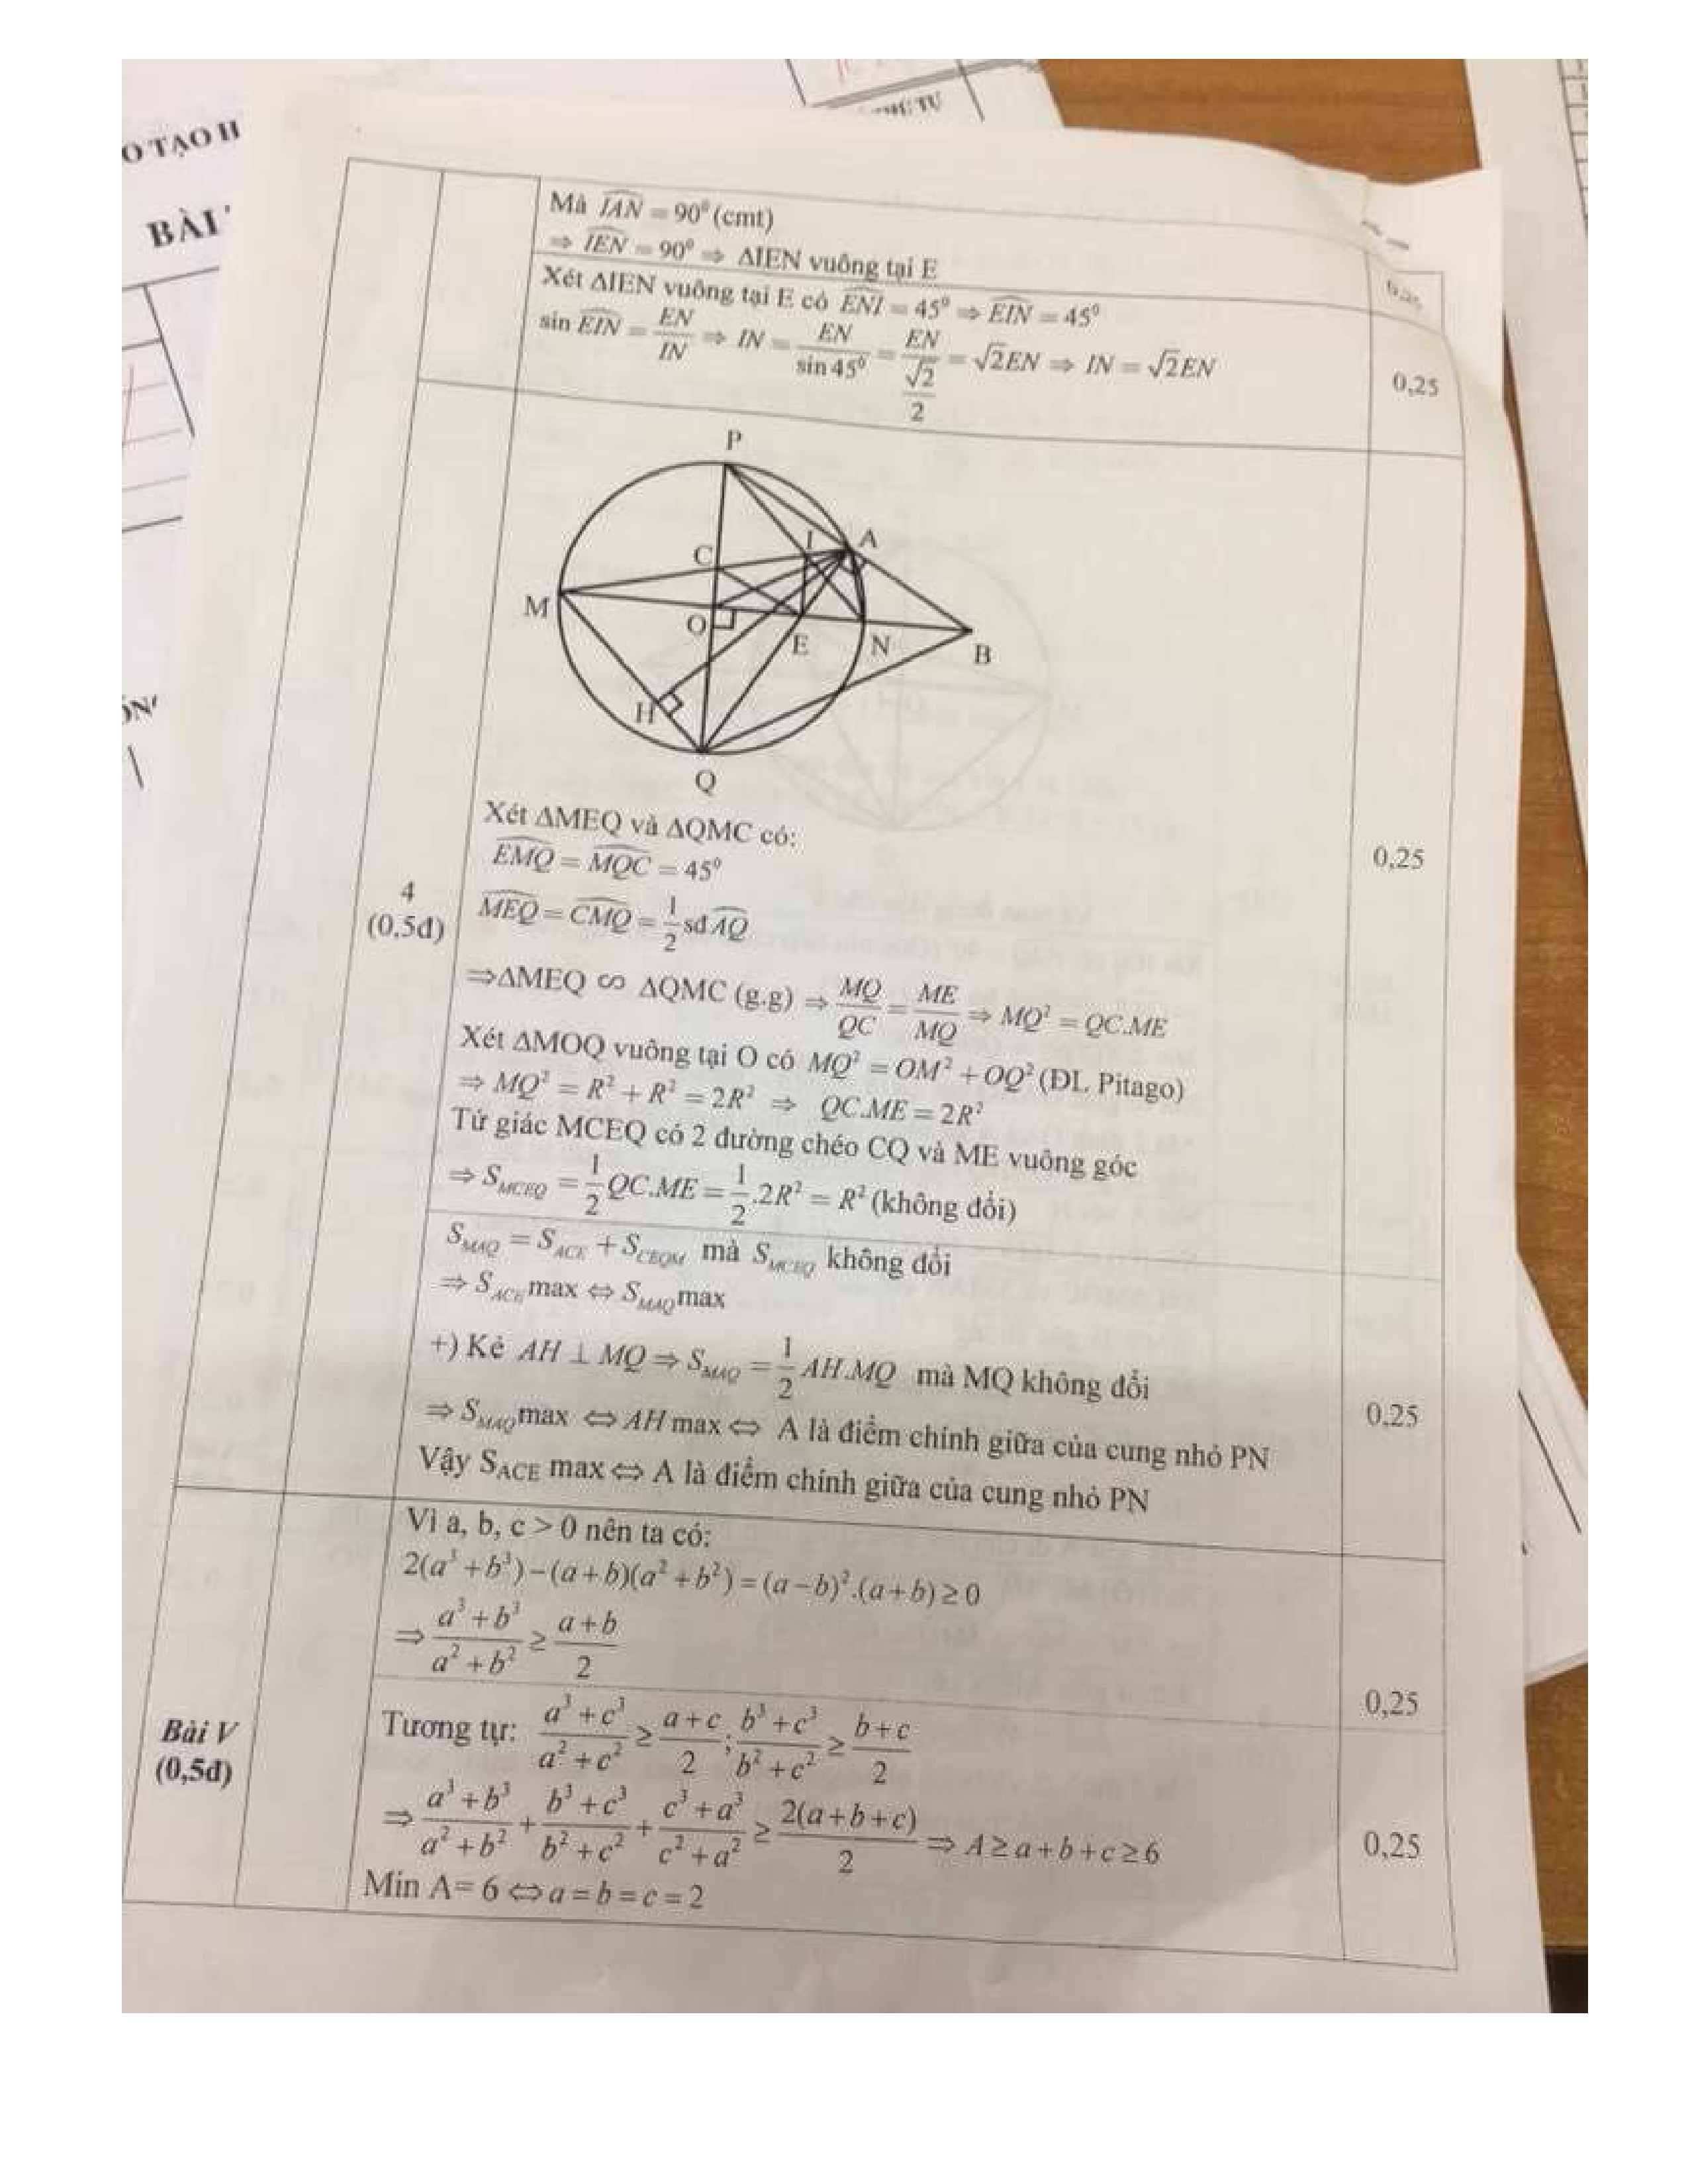 O TẠO H
BÀI
Mà $\widehat{IAN} = 90^0$ (cmt)
⇒ $\widehat{IEN} = 90^0$ ⇒ ΔIEN vuông tại E
0,25
Xét ΔIEN vuông tại E có $\widehat{ENI} = 45^0 ⇒ \widehat{EIN} = 45^0$
$\sin \widehat{EIN} = \frac{EN}{IN} ⇒ IN = \frac{EN}{\sin 45^0} = \frac{EN}{\frac{\sqrt{2}}{2}} = \sqrt{2}EN ⇒ IN = \sqrt{2}EN$
0,25
P
C I A
M O E N B
H
Q
Xét ΔMEQ và ΔQMC có:
$\widehat{EMQ} = \widehat{MQC} = 45^0$
0,25
4
(0,5đ)
$\widehat{MEQ} = \widehat{CMQ} = \frac{1}{2}$ sđ $\widehat{AQ}$
⇒ΔMEQ ∽ ΔQMC (g.g) ⇒ $\frac{MQ}{QC} = \frac{ME}{MQ} ⇒ MQ^2 = QC.ME$
Xét ΔMOQ vuông tại O có $MQ^2 = OM^2 + OQ^2$ (ĐL Pitago)
⇒ $MQ^2 = R^2 + R^2 = 2R^2$ ⇒ $QC.ME = 2R^2$
Tứ giác MCEQ có 2 đường chéo CQ và ME vuông góc
⇒ $S_{MCEQ} = \frac{1}{2}QC.ME = \frac{1}{2}.2R^2 = R^2$ (không đổi)
$S_{MAQ} = S_{ACE} + S_{CEQM}$ mà $S_{MCEQ}$ không đổi
⇒ $S_{ACE}$ max ⇔ $S_{MAQ}$ max
+) Kẻ $AH ⊥ MQ ⇒ S_{MAQ} = \frac{1}{2}AH.MQ$ mà MQ không đổi
⇒ $S_{MAQ}$ max ⇔ AH max ⇔ A là điểm chính giữa của cung nhỏ PN
0,25
Vậy $S_{ACE}$ max ⇔ A là điểm chính giữa của cung nhỏ PN
Vì a, b, c > 0 nên ta có:
$2(a^3 + b^3) - (a + b)(a^2 + b^2) = (a - b)^2.(a + b) ≥ 0$
⇒ $\frac{a^3 + b^3}{a^2 + b^2} ≥ \frac{a + b}{2}$
0,25
Bài V
(0,5đ)
Tương tự: $\frac{a^3 + c^3}{a^2 + c^2} ≥ \frac{a + c}{2}; \frac{b^3 + c^3}{b^2 + c^2} ≥ \frac{b + c}{2}$
⇒ $\frac{a^3 + b^3}{a^2 + b^2} + \frac{b^3 + c^3}{b^2 + c^2} + \frac{c^3 + a^3}{c^2 + a^2} ≥ \frac{2(a + b + c)}{2} ⇒ A ≥ a + b + c ≥ 6$
0,25
Min A= 6 ⇔ a = b = c = 2